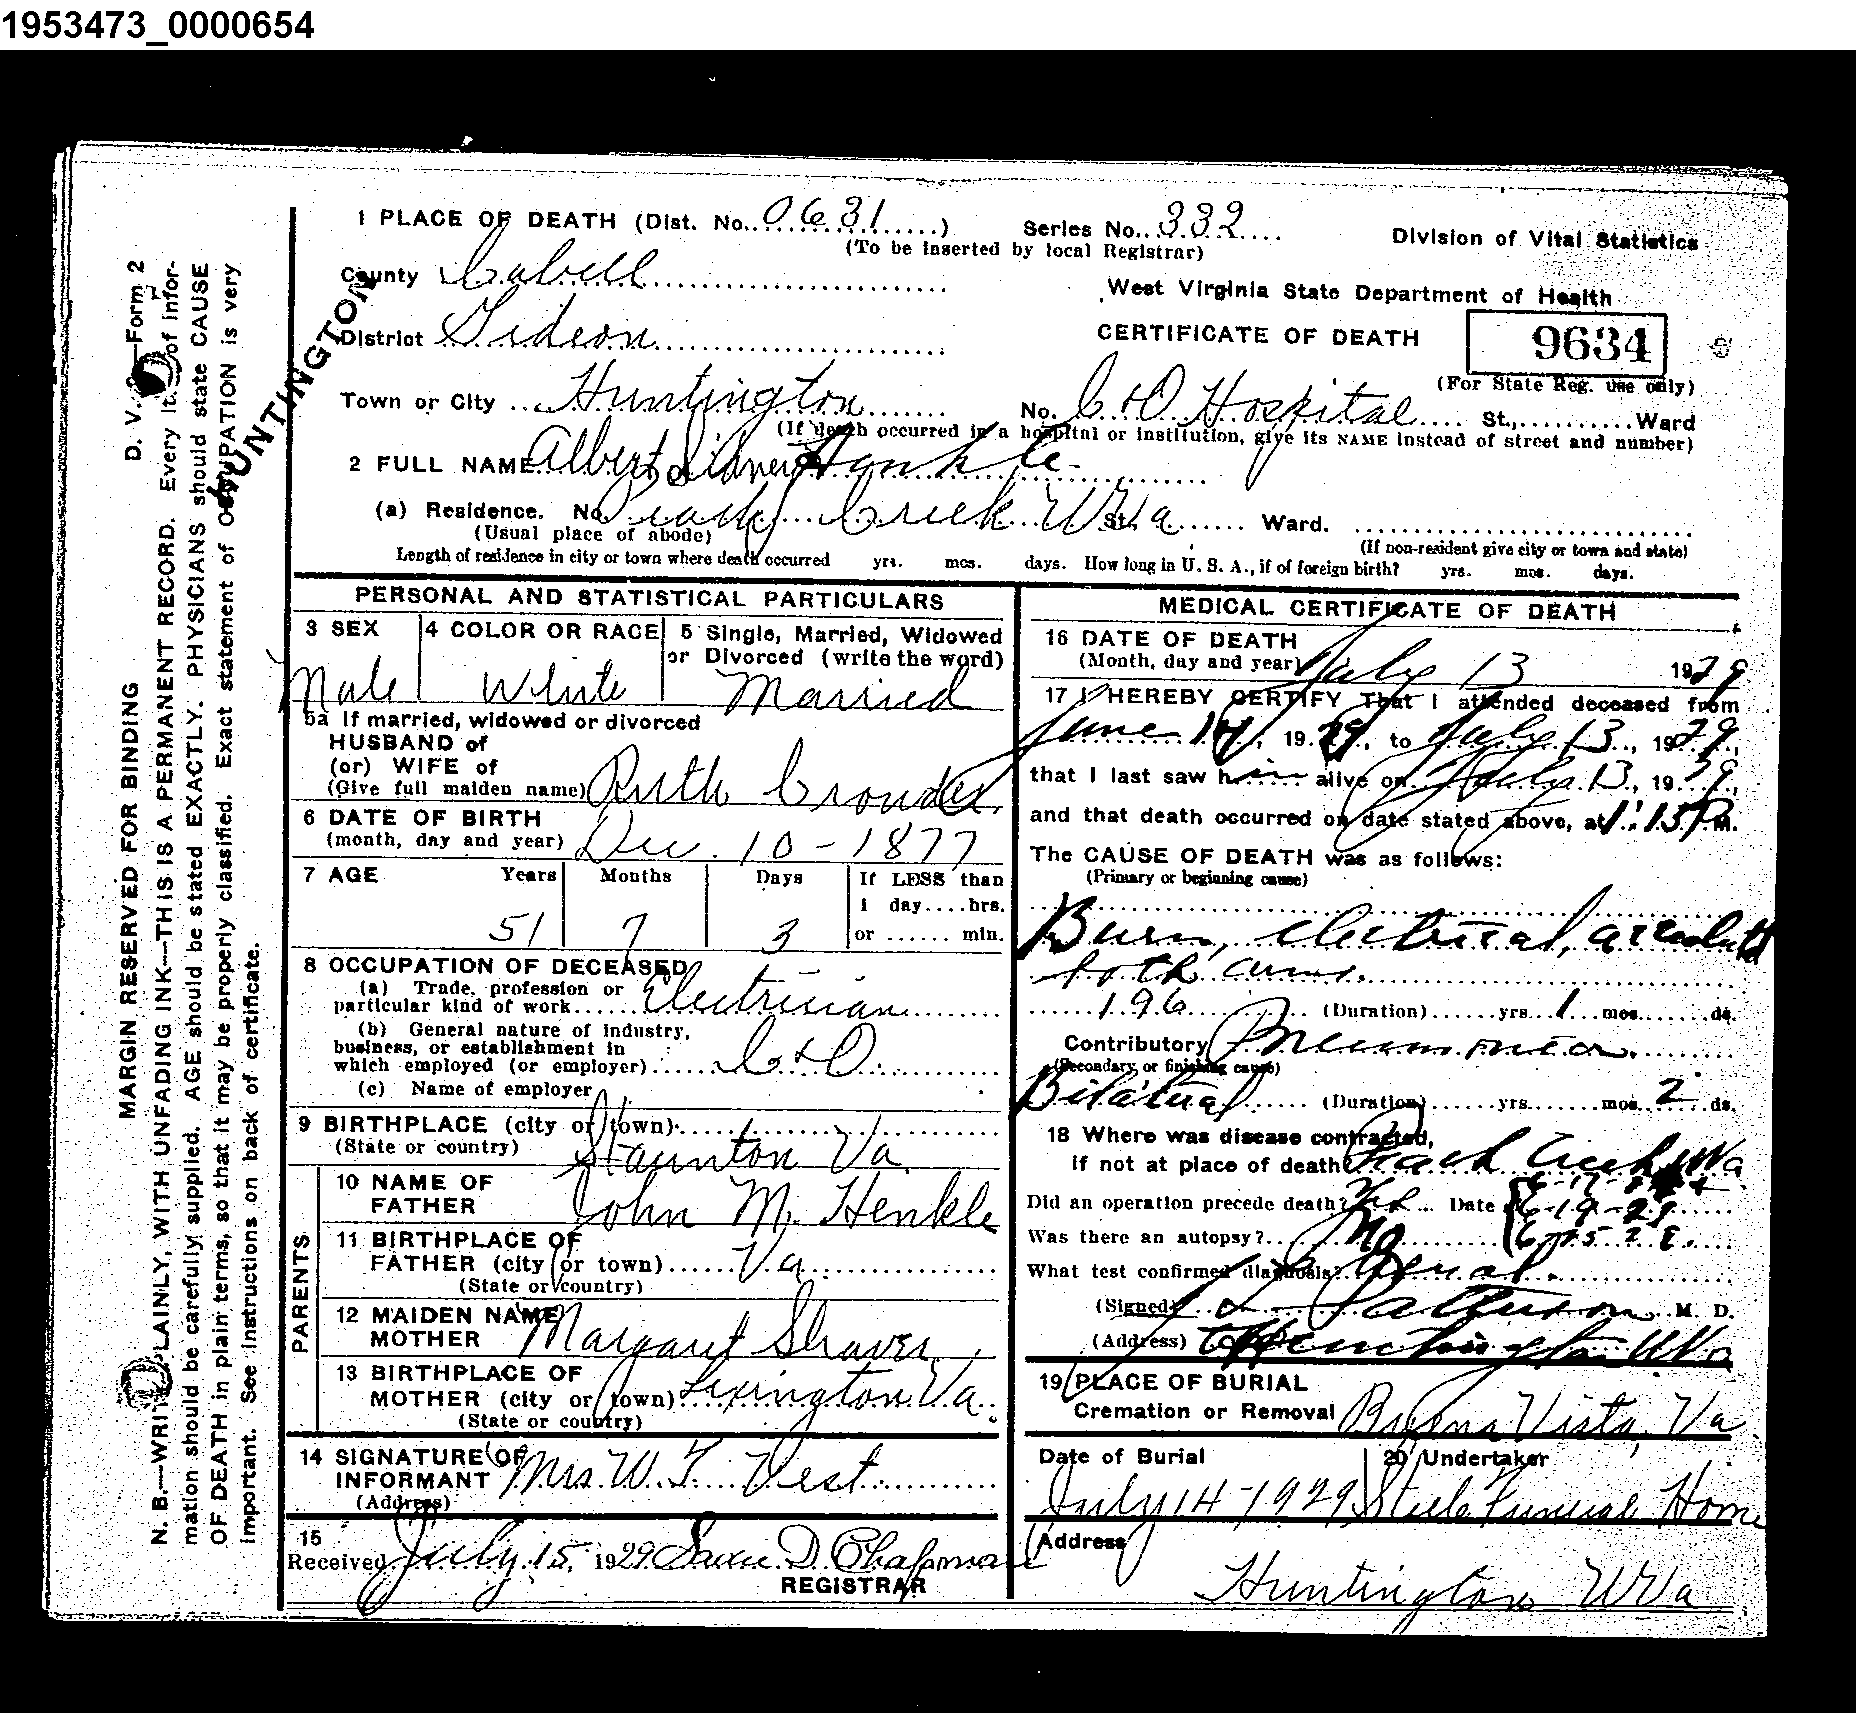 1953473_0000654
1 PLACE OF DEATH (Dist. No. 0631)
Series No. 332
(To be inserted by local Registrar)
Division of Vital Statistics
County Cabell
West Virginia State Department of Health
District Gideon
CERTIFICATE OF DEATH
9634
(For State Reg. use only)
HUNTINGTON
Town or City Huntington
No. C + O Hospital St., Ward
(If death occurred in a hospital or institution, give its NAME instead of street and number)
2 FULL NAME Albert Sidney Henkle
(a) Residence. No. Peach Creek W Va St. Ward.
(Usual place of abode)
(If non-resident give city or town and state)
Length of residence in city or town where death occurred yrs. mos. days. How long in U. S. A., if of foreign birth? yrs. mos. days.
PERSONAL AND STATISTICAL PARTICULARS
3 SEX
Male
4 COLOR OR RACE
White
5 Single, Married, Widowed
or Divorced (write the word)
Married
5a If married, widowed or divorced
HUSBAND of
(or) WIFE of
(Give full maiden name) Ruth Crowder
6 DATE OF BIRTH
(month, day and year) Dec. 10 - 1877
7 AGE Years Months Days If LESS than
1 day....hrs.
51 7 3 or ...... min.
8 OCCUPATION OF DECEASED
(a) Trade, profession or
particular kind of work Electrician
(b) General nature of industry,
business, or establishment in
which employed (or employer) C + O
(c) Name of employer
9 BIRTHPLACE (city or town)
(State or country) Staunton Va.
PARENTS
10 NAME OF
FATHER John M. Henkle
11 BIRTHPLACE OF
FATHER (city or town) Va
(State or country)
12 MAIDEN NAME
MOTHER Margaret Shaver
13 BIRTHPLACE OF
MOTHER (city or town) Lexington Va
(State or country)
14 SIGNATURE OF
INFORMANT Mrs. W. T. Vest
(Address)
15
Received July 15, 1929 D. Chapman
REGISTRAR
MEDICAL CERTIFICATE OF DEATH
16 DATE OF DEATH
(Month, day and year) July 13 1929
17 I HEREBY CERTIFY That I attended deceased from
June 14, 1929, to July 13, 1929,
that I last saw him alive on July 13, 1929,
and that death occurred on date stated above, at 1:15 P m.
The CAUSE OF DEATH was as follows:
(Primary or beginning cause)
Burn, electrical,
both arms.
196 (Duration) yrs. 1 mos. ds.
Contributory Pneumonia
(Secondary or finishing cause)
Bilateral (Duration) yrs. mos. 2 ds.
18 Where was disease contracted,
if not at place of death? Peach Creek W Va
Did an operation precede death? Yes Date 6-19-29
Was there an autopsy? No
What test confirmed diagnosis?
(Signed) Patterson M. D.
(Address) Huntington W Va
19 PLACE OF BURIAL
Cremation or Removal Buena Vista, Va
Date of Burial
July 14 - 1929
20 Undertaker
Steele Funeral Home
Address
Huntington W Va
D. V. Form 2
MARGIN RESERVED FOR BINDING
N. B.—WRITE PLAINLY, WITH UNFADING INK—THIS IS A PERMANENT RECORD. Every item of infor-
mation should be carefully supplied. AGE should be stated EXACTLY. PHYSICIANS should state CAUSE
OF DEATH in plain terms, so that it may be properly classified. Exact statement of OCCUPATION is very
important. See instructions on back of certificate.